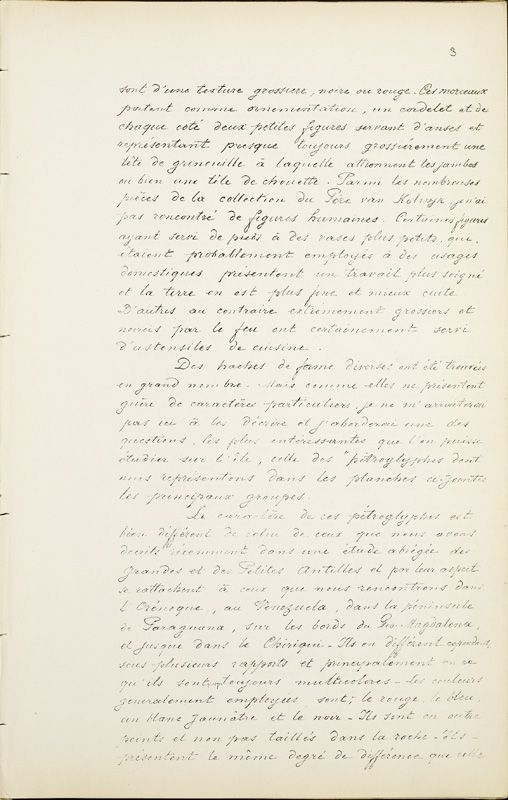 3
sont d'une texture grossiere, noire ou rouge. Ces morceaux
portent comme ornementation, un cordelet et de
chaque coté deux petites figures servant d'anses et
représentant presque toujours grossièrement une
tête de grenouille à laquelle attiennent les jambes
ou bien une tête de chouette. Parmi les nombreuses
pièces de la collection du Père van Kolwyk je n'ai
pas rencontré de figures humaines. Certaines figures
ayant servi de pieds à des vases plus petits, que,
étaient probablement employés à des usages
domestiques présentent un travail plus soigné
et la terre en est plus fine et mieux cuite
D'autres au contraire extrêmement grossiers et
noircis par le feu ont certainement servi
d'ustensiles de cuisine.
Des haches de forme diverses ont été trouvées
en grand nombre. Mais comme elles ne présentent
guère de caractères particuliers, je ne m'arrêterai
pas ici à les décrire et j'aborderai une des
questions, les plus intéressantes que l'on puisse
étudier sur l'île, celle des "pétroglyphes dont
nous représentons dans les planches ci-jointes
les principaux groupes.
Le caractère de ces pétroglyphes est
bien différent de celui de ceux que nous avons
décrits récemment dans une étude abrégée des
Grandes et des Petites Antilles et par leur aspect
se rattachent à ceux que nous rencontrons dans
l'Orénoque, au Vénézuela, dans la péninsule
de Paraguana, sur les bords du Rio Magdalena,
et jusque dans le Chiriqui - Ils en différent cependant,
sous plusieurs rapports et principalement en ce
qu'ils sont toujours multicolores - Les couleurs
généralement employées sont; le rouge, le bleu,
un blanc jaunâtre et le noir - Ils sont en outre
peints et non pas taillés dans la roche - Ils -
présentent le même degré de différence que celle